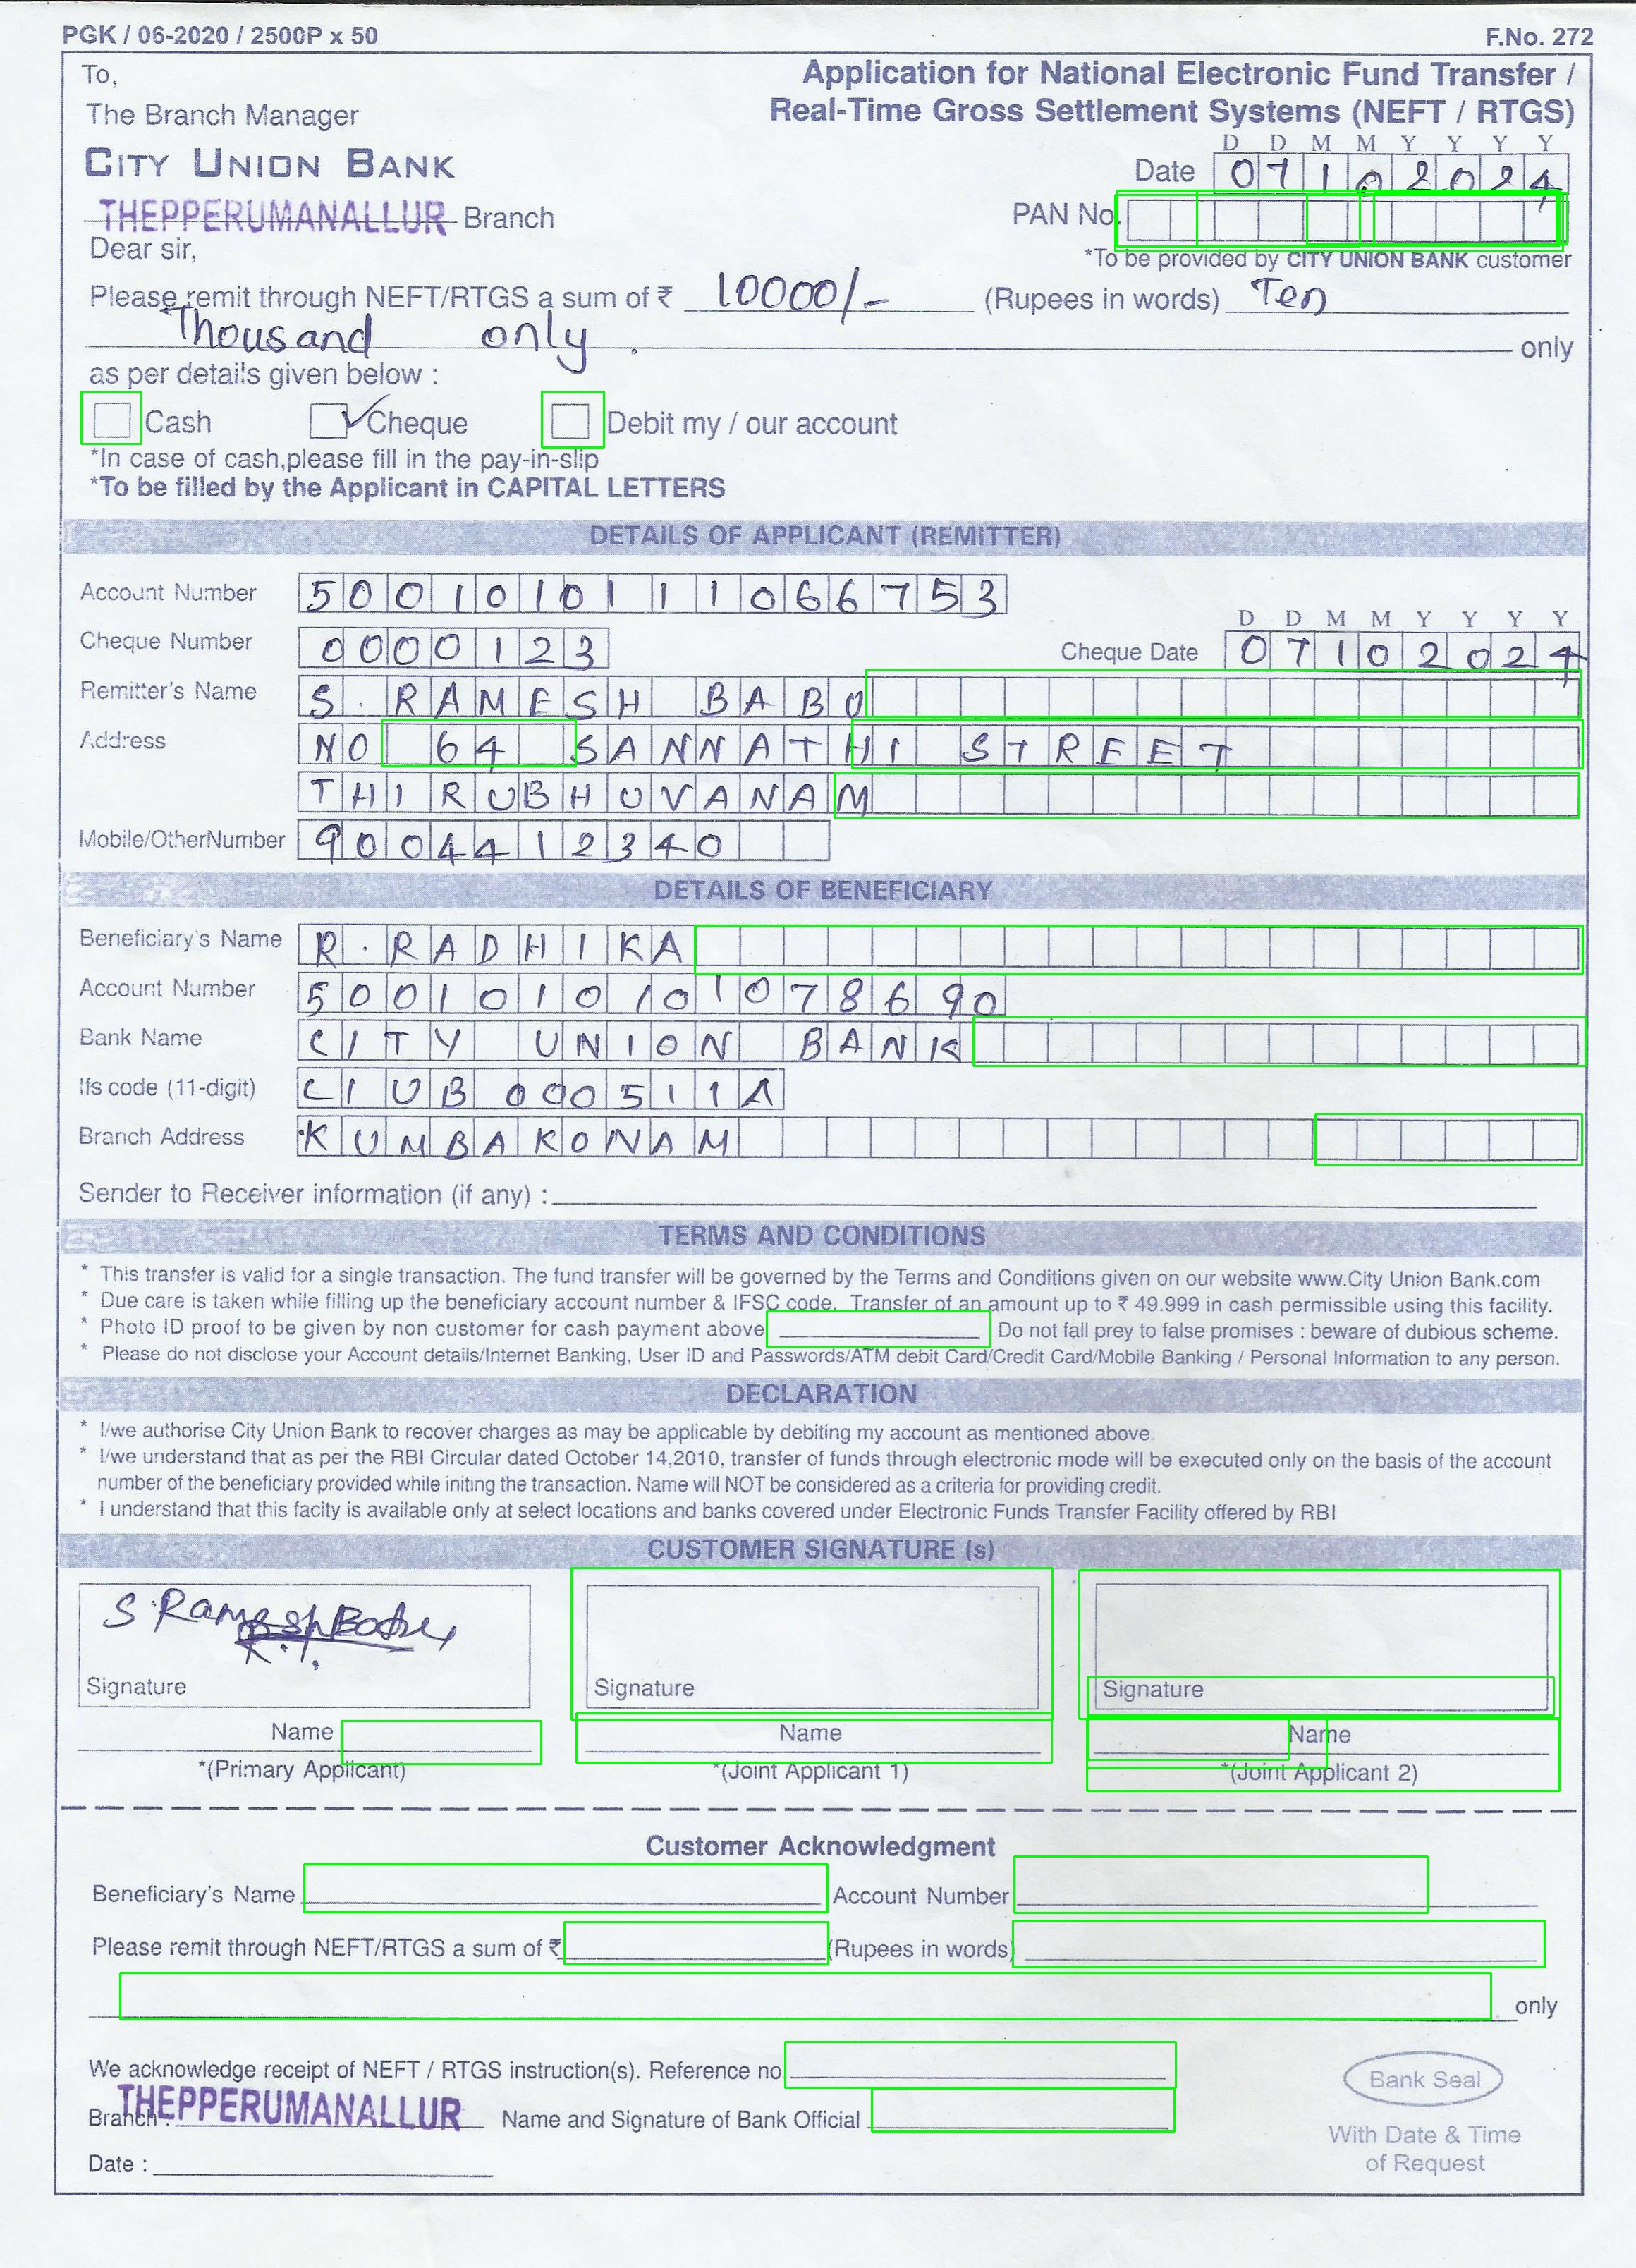 PGK / 06-2020 / 2500P x 50 F.No. 272
To,
The Branch Manager
CITY UNION BANK
THEPPERUMANALLUR Branch
Application for National Electronic Fund Transfer /
Real-Time Gross Settlement Systems (NEFT / RTGS)
D D M M Y Y Y Y
Date 07102024
PAN No.
*To be provided by CITY UNION BANK customer
Dear sir,
Please remit through NEFT/RTGS a sum of ₹ 10000/- (Rupees in words) Ten
Thousand only. only
as per details given below :
Cash Cheque Debit my / our account
*In case of cash,please fill in the pay-in-slip
*To be filled by the Applicant in CAPITAL LETTERS
DETAILS OF APPLICANT (REMITTER)
Account Number 5001010111066753
D D M M Y Y Y Y
Cheque Number 0000123 Cheque Date 07102024
Remitter's Name S. RAMESH BABU
Address NO 64 SANNATHI STREET
THIRUBHUVANAM
Mobile/OtherNumber 9004412340
DETAILS OF BENEFICIARY
Beneficiary's Name R. RADHIKA
Account Number 5001010101078690
Bank Name CITY UNION BANK
Ifs code (11-digit) CIUB000511A
Branch Address KUMBAKONAM
Sender to Receiver information (if any) :
TERMS AND CONDITIONS
* This transfer is valid for a single transaction. The fund transfer will be governed by the Terms and Conditions given on our website www.City Union Bank.com
* Due care is taken while filling up the beneficiary account number & IFSC code. Transfer of an amount up to ₹ 49.999 in cash permissible using this facility.
* Photo ID proof to be given by non customer for cash payment above Do not fall prey to false promises : beware of dubious scheme.
* Please do not disclose your Account details/Internet Banking, User ID and Passwords/ATM debit Card/Credit Card/Mobile Banking / Personal Information to any person.
DECLARATION
* I/we authorise City Union Bank to recover charges as may be applicable by debiting my account as mentioned above.
* I/we understand that as per the RBI Circular dated October 14,2010, transfer of funds through electronic mode will be executed only on the basis of the account
number of the beneficiary provided while initing the transaction. Name will NOT be considered as a criteria for providing credit.
* I understand that this facity is available only at select locations and banks covered under Electronic Funds Transfer Facility offered by RBI
CUSTOMER SIGNATURE (s)
S. Ramesh Babu
Signature Signature Signature
Name Name Name
*(Primary Applicant) *(Joint Applicant 1) *(Joint Applicant 2)
Customer Acknowledgment
Beneficiary's Name Account Number
Please remit through NEFT/RTGS a sum of ₹ (Rupees in words)
only
We acknowledge receipt of NEFT / RTGS instruction(s). Reference no
Bank Seal
Branch : THEPPERUMANALLUR Name and Signature of Bank Official
With Date & Time
of Request
Date :